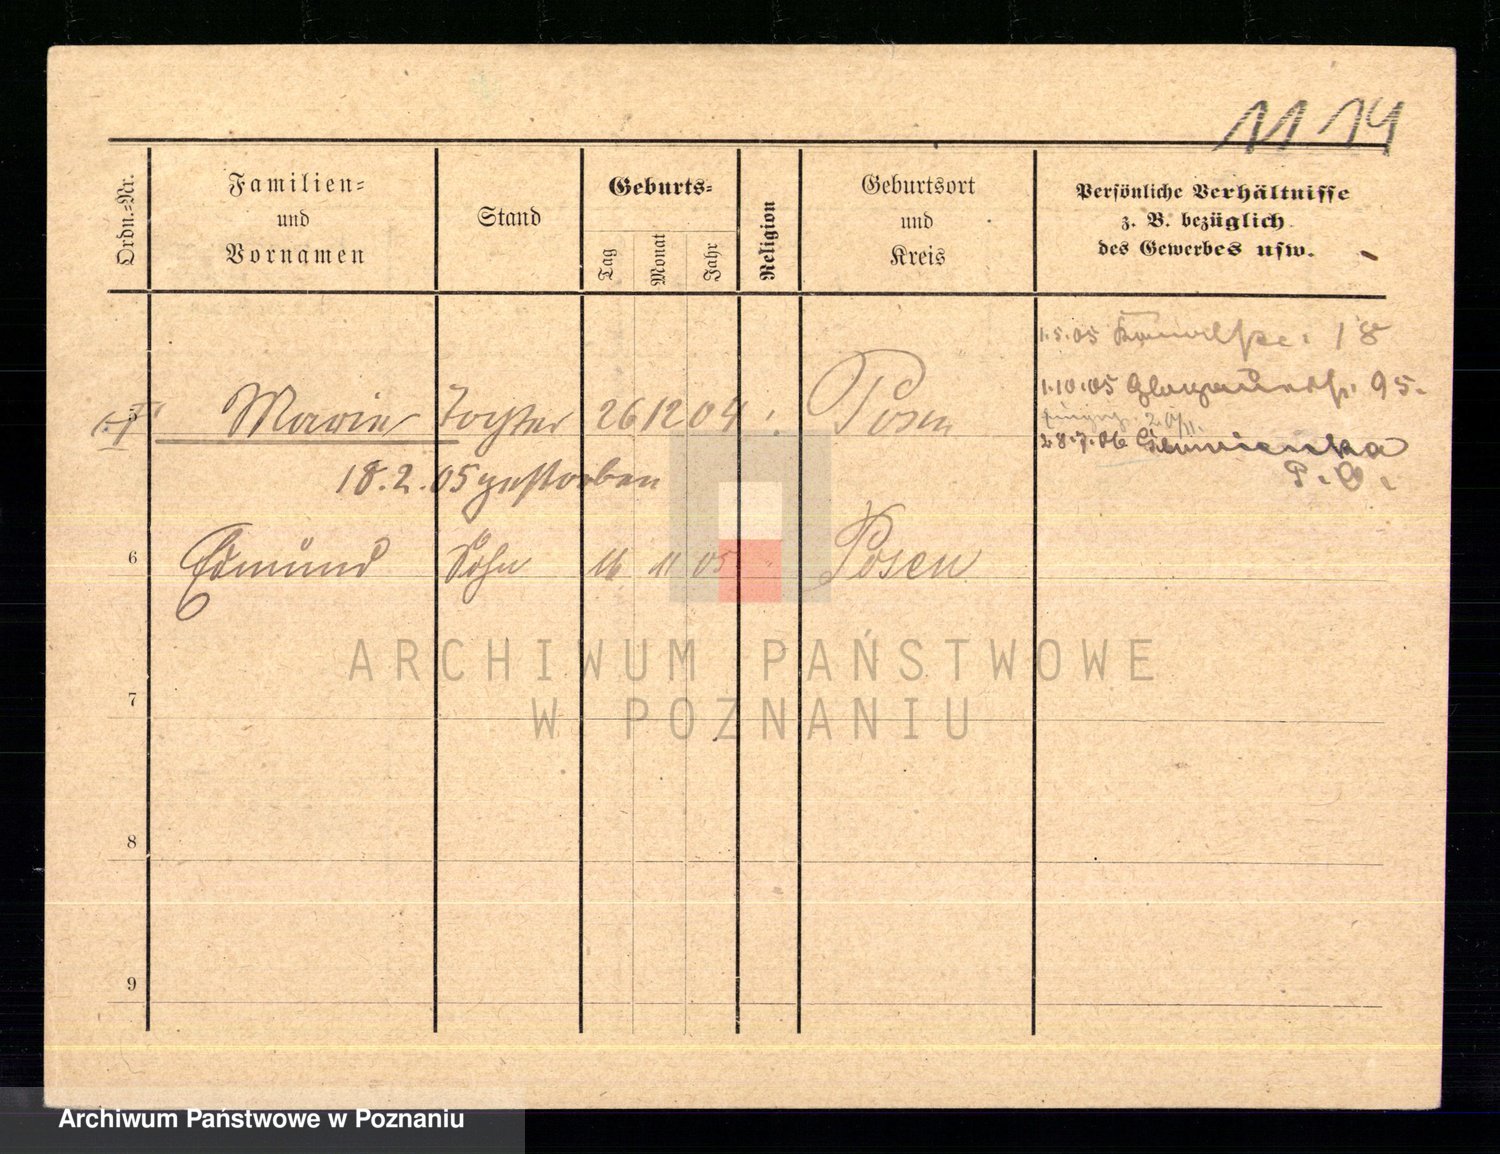 11 14
Ordn.-Nr.
Familien-
und
Vornamen
Stand
Geburts-
Tag
Monat
Jahr
Religion
Geburtsort
und
Kreis
Persönliche Verhältnisse
z. B. bezüglich
des Gewerbes usw.
1.5.05 18
1.10.05 Glogauerstr. 95.
5 Marie Tochter 26 12 04 Posen
20/11.
28.7.06
P. O.
18.2.05 gestorben
6 Edmund Sohn 16 11 05 Posen
7
8
9
ARCHIWUM PAŃSTWOWE
W POZNANIU
Archiwum Państwowe w Poznaniu